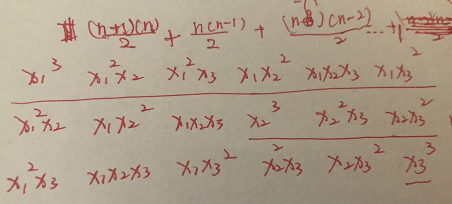 (n+1)(n)/2 + n(n-1)/2 + (n-1)(n-2)/2 ... +
x₁³ x₁²x₂ x₁²x₃ x₁x₂² x₁x₂x₃ x₁x₃²
x₁²x₂ x₁x₂² x₁x₂x₃ x₂³ x₂²x₃ x₂x₃²
x₁²x₃ x₁x₂x₃ x₁x₃² x₂²x₃ x₂x₃² x₃³